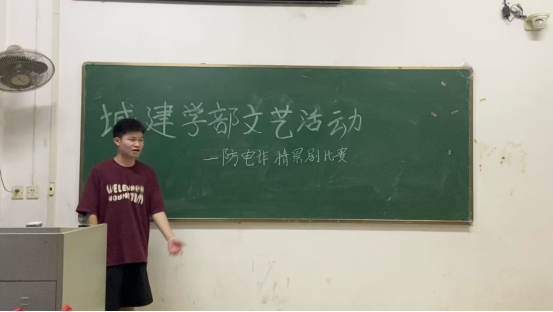 城建学部文艺活动
—防电诈情景剧比赛